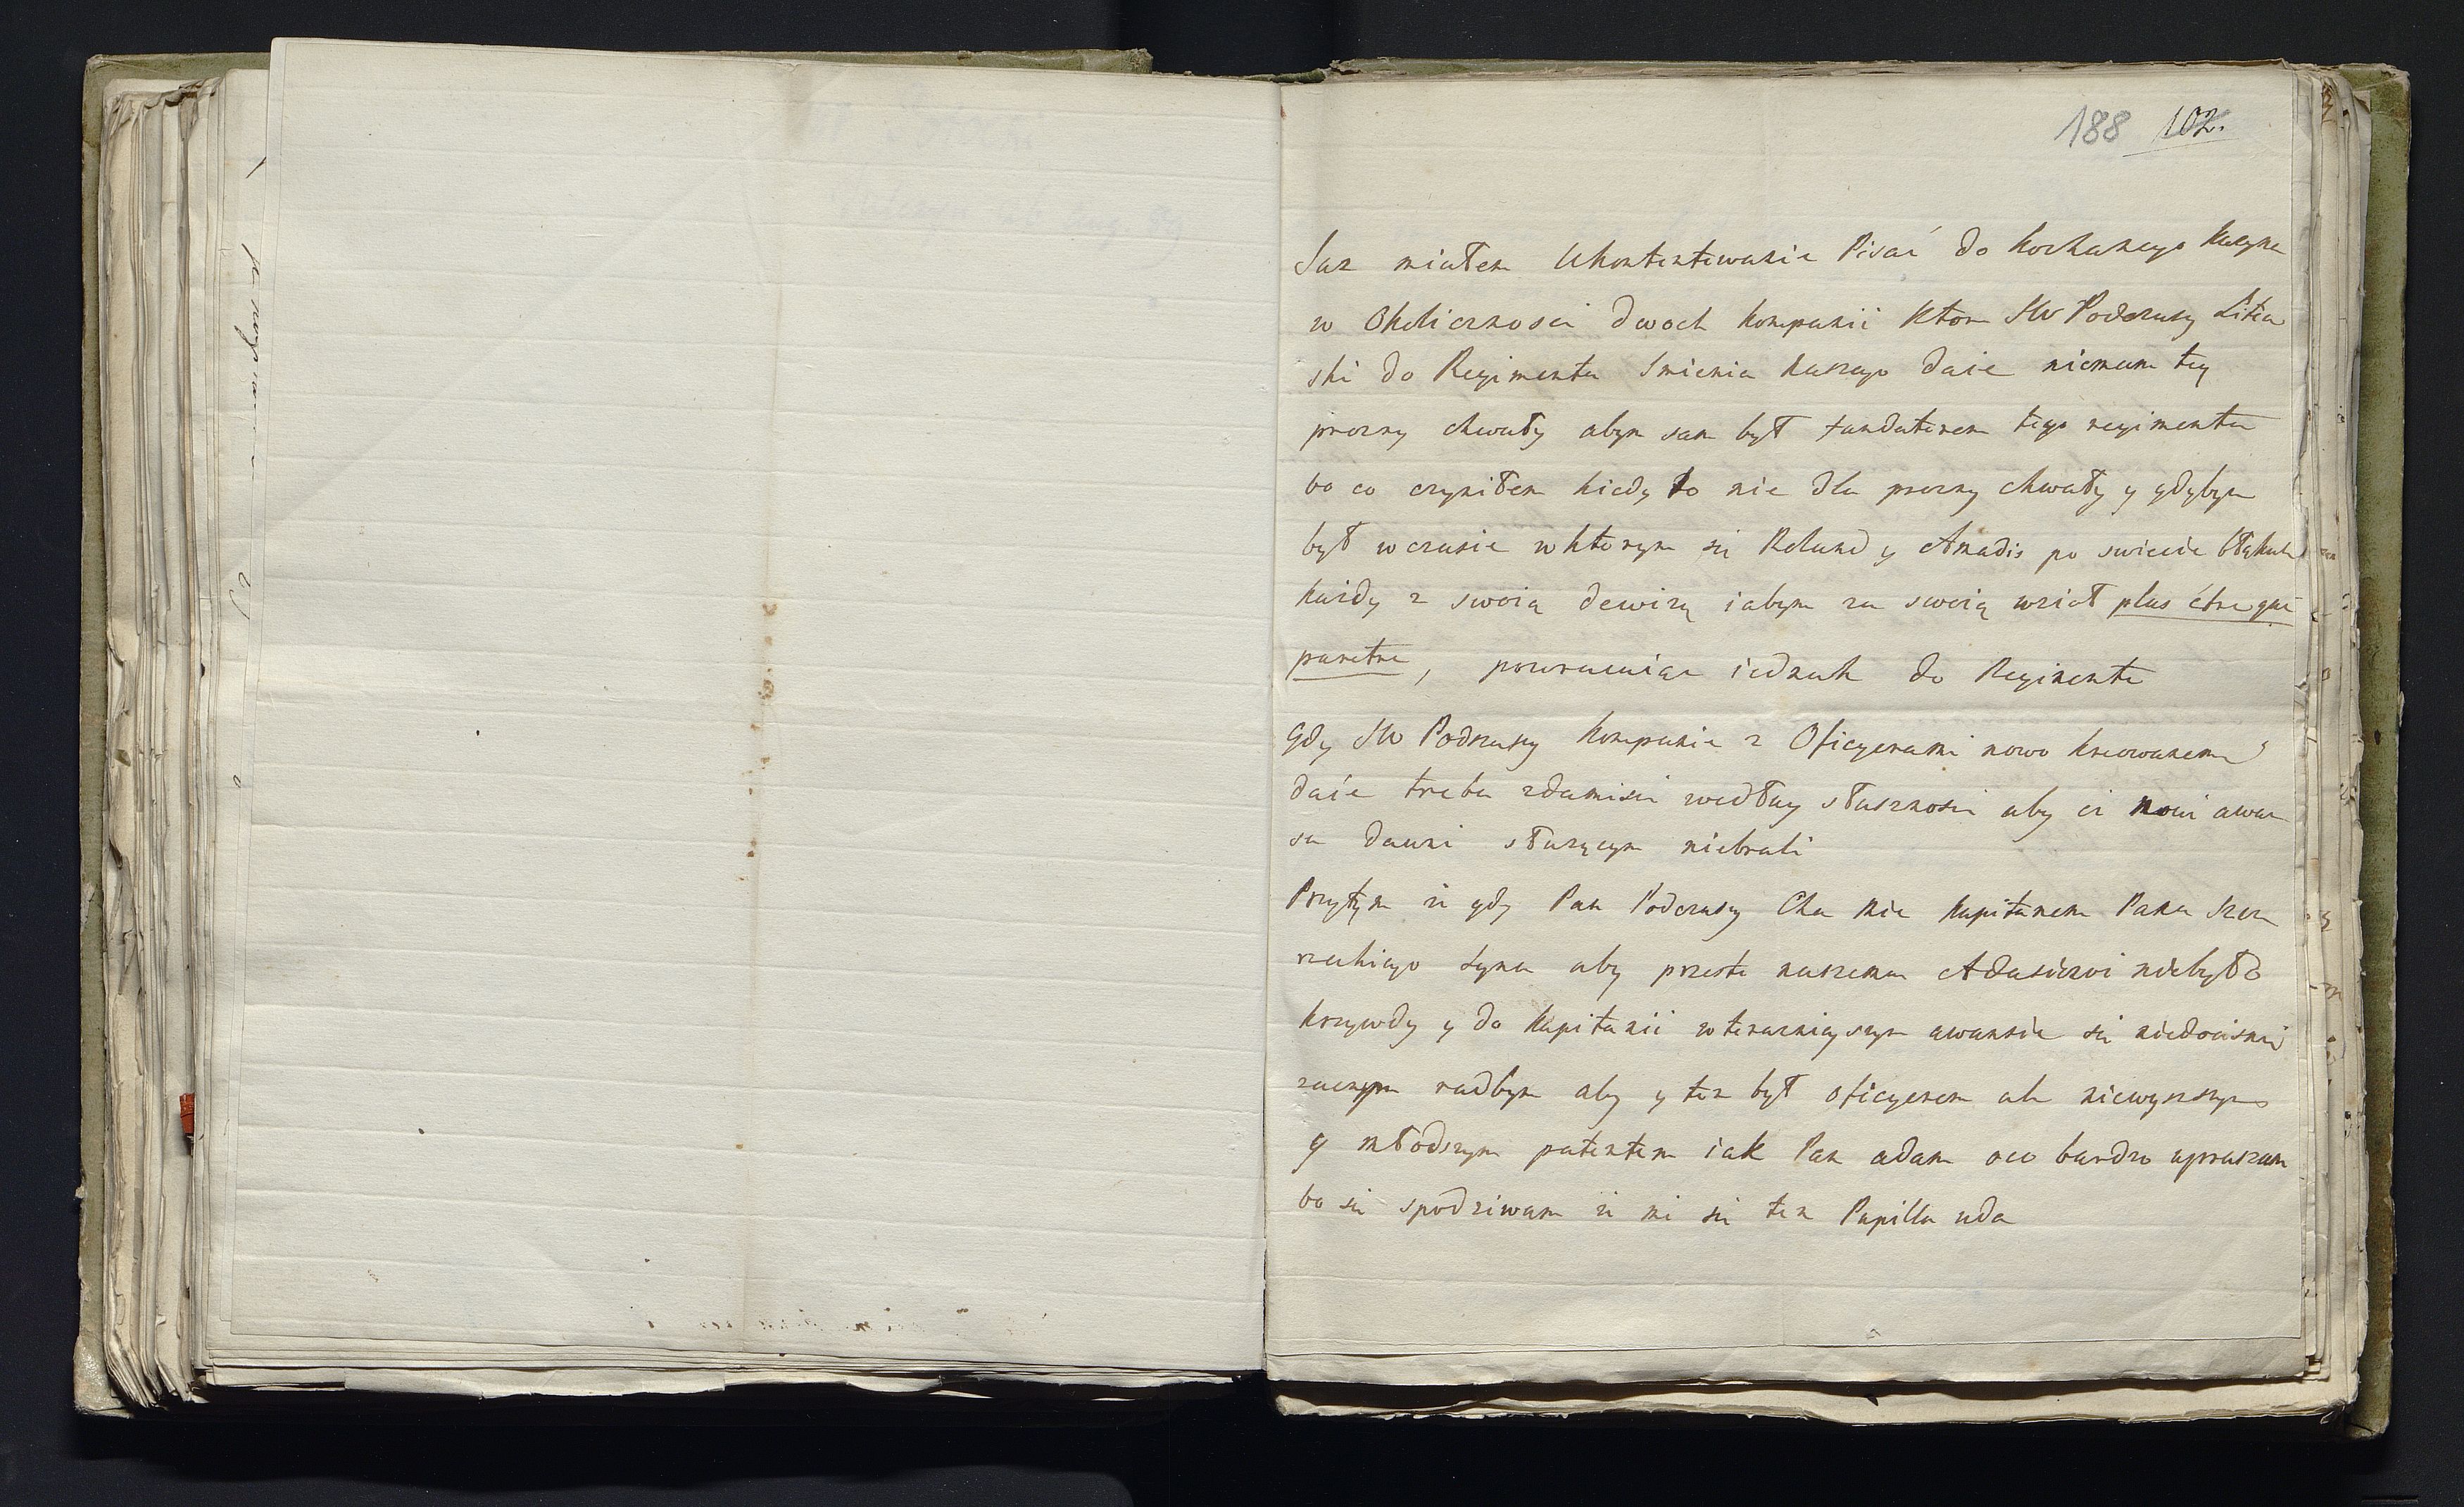 188 102.
Juz miałem Ukontentowanie Pisać do kochanego
w Okolicznosci dwoch kompanii ktore JW Podczaszy Litew
ski do Regimentu Imienia naszego daie niemam tey
prozny chwały abym sam był fundatorem tego regimentu
bo co czyniłem kiedy to nie dla prozny chwały y gdybym
był w czasie w ktorym się Roland y Amadis po swiecie błąkali
kazdy z swoią dewizą iabym za swoią wziął plus être que
paretre, powracaiąc iednak do Regimentu
gdy JW Podczaszy kompanie z Oficyerami nowo kreowanemi
daie treba zdamisie według słusznosci aby ci nowi awan
su dawni słuzącym niebrali
Przytym iż gdy Pan Podczaszy Chce mie kapitanem Pana
syna aby przesto naszemu Adasiowi niebyło
krzywdy y do kapitanii w teraznieyszym awansie się niedocisnął
zaczym radbym aby y ten był oficyerem ale niewyzszym
y młodszym patentem iak Pan adam oco bardzo upraszam
bo się spodziwam iż mi się ten Pupilla uda